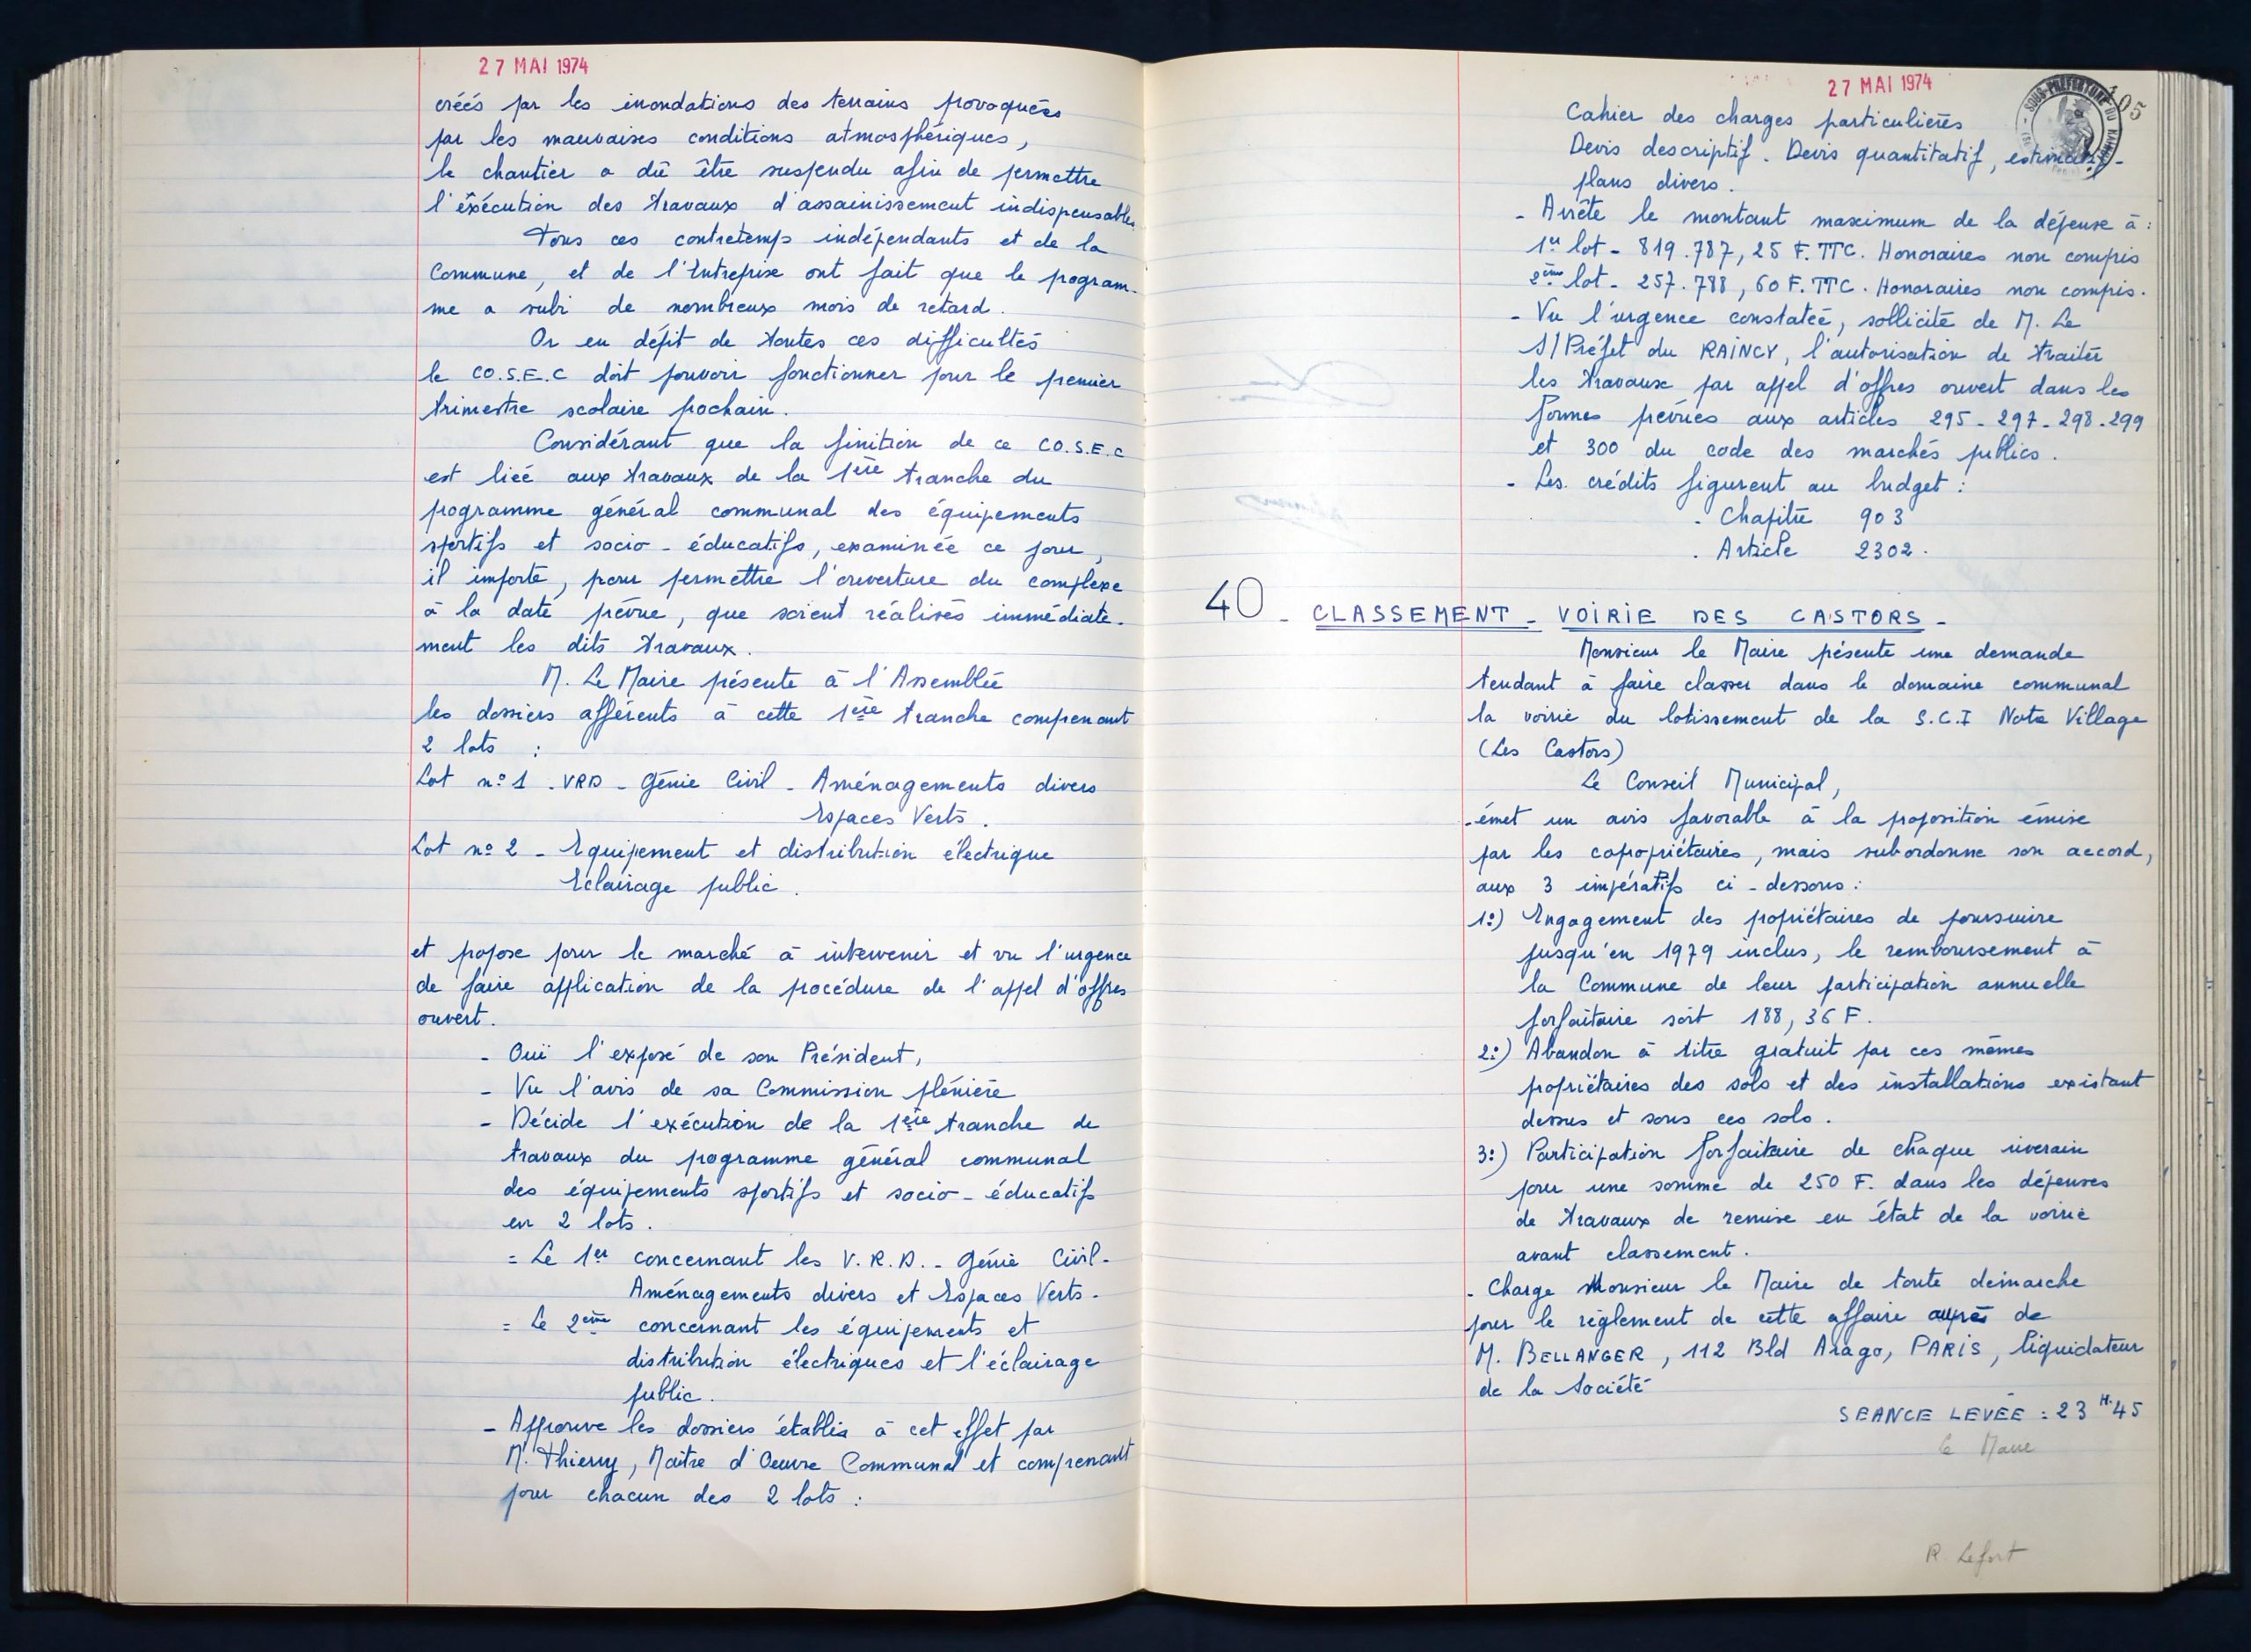 27 MAI 1974
créés par les inondations des terrains provoquées
par les mauvaises conditions atmosphériques,
le chantier a dû être suspendu afin de permettre
l'éxécution des travaux d'assainissement indispensables
Tous ces contretemps indépendants et de la
Commune, et de l'Entreprise ont fait que le program-
me a subi de nombreux mois de retard.
Or en dépit de toutes ces difficultés
le CO.S.E.C doit pouvoir fonctionner pour le premier
trimestre scolaire prochain.
Considérant que la finition de ce CO.S.E.C
est liée aux travaux de la 1ère tranche du
programme général communal des équipements
sportifs et socio-éducatifs, examinée ce jour,
il importe, pour permettre l'ouverture du complexe
à la date prévue, que soient réalisés immédiate-
ment les dits travaux.
M. Le Maire présente à l'Assemblée
les dossiers afférents à cette 1ère tranche comprenant
2 lots :
Lot n° 1 - VRD - Génie Civil - Aménagements divers
Espaces Verts.
Lot n° 2 - Equipement et distribution électrique
Eclairage public.
et propose pour le marché à intervenir et vu l'urgence
de faire application de la procédure de l'appel d'offres
ouvert.
- Ouï l'exposé de son Président,
- Vu l'avis de sa Commission plénière
- Décide l'exécution de la 1ère tranche de
travaux du programme général communal
des équipements sportifs et socio-éducatifs
en 2 lots.
= Le 1er concernant les V.R.D. - Génie Civil -
Aménagements divers et Espaces Verts -
= Le 2ème concernant les équipements et
distribution électriques et l'éclairage
public.
- Approuve les dossiers établis à cet effet par
M. Thierry, Maître d'Oeuvre Communal et comprenant
pour chacun des 2 lots :
27 MAI 1974
105
SOUS-PRÉFECTURE DU RAINCY
Cahier des charges particulières
Devis descriptif. Devis quantitatif, estimatif -
plans divers.
- Arrête le montant maximum de la dépense à :
1er lot - 819.787,25 F. TTC. Honoraires non compris
2ème lot - 257.788,60 F. TTC. Honoraires non compris.
- Vu l'urgence constatée, sollicite de M. Le
S/Préfet du RAINCY, l'autorisation de traiter
les travaux par appel d'offres ouvert dans les
formes prévues aux articles 295 - 297 - 298 - 299
et 300 du code des marchés publics.
- Les crédits figurent au budget :
. Chapitre 903
. Article 2302.
40 - CLASSEMENT - VOIRIE DES CASTORS -
Monsieur le Maire présente une demande
tendant à faire classer dans le domaine communal
la voirie du lotissement de la S.C.I Notre Village
(Les Castors)
Le Conseil Municipal,
- émet un avis favorable à la proposition émise
par les copropriétaires, mais subordonne son accord,
aux 3 impératifs ci-dessous :
1°) Engagement des propriétaires de poursuivre
jusqu'en 1979 inclus, le remboursement à
la Commune de leur participation annuelle
forfaitaire soit 188,36 F.
2°) Abandon à titre gratuit par ces mêmes
propriétaires des sols et des installations existant
dessus et sous ces sols.
3°) Participation forfaitaire de chaque riverain
pour une somme de 250 F. dans les dépenses
de travaux de remise en état de la voirie
avant classement.
- Charge Monsieur le Maire de toute démarche
pour le règlement de cette affaire auprès de
M. BELLANGER, 112 Bld Arago, PARIS, liquidateur
de la Société
SEANCE LEVÉE : 23 H. 45
Le Maire
R. Lefort